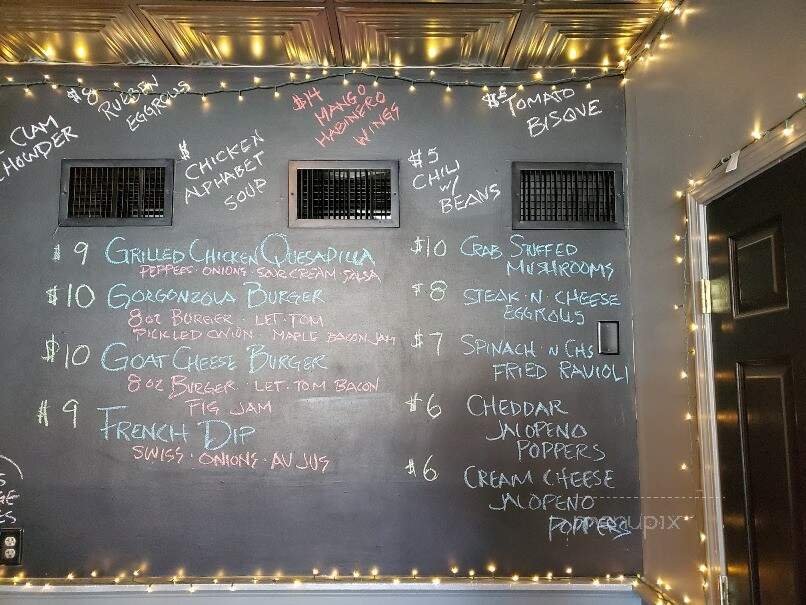 $8 RUEBEN
EGGROLLS
$14
MANGO
HABINERO
WINGS
TOMATO
BISQUE
CLAM
CHOWDER
$
CHICKEN
ALPHABET
SOUP
$5
CHILI
W/
BEANS
$9 GRILLED CHICKEN QUESADILLA
PEPPERS · ONIONS · SOUR CREAM SALSA
$10 GORGONZOLA BURGER
8oz BURGER · LET · TOM
PICKLED ONION · MAPLE BACON JAM
$10 GOAT CHEESE BURGER
8oz BURGER · LET · TOM BACON
FIG JAM
$9 FRENCH DIP
SWISS · ONIONS · AU JUS
$10 CRAB STUFFED
MUSHROOMS
$8 STEAK · N · CHEESE
EGGROLLS
$7 SPINACH · N CHS
FRIED RAVIOLI
$6 CHEDDAR
JALOPENO
POPPERS
$6 CREAM CHEESE
JALOPENO
POPPERS
menupix